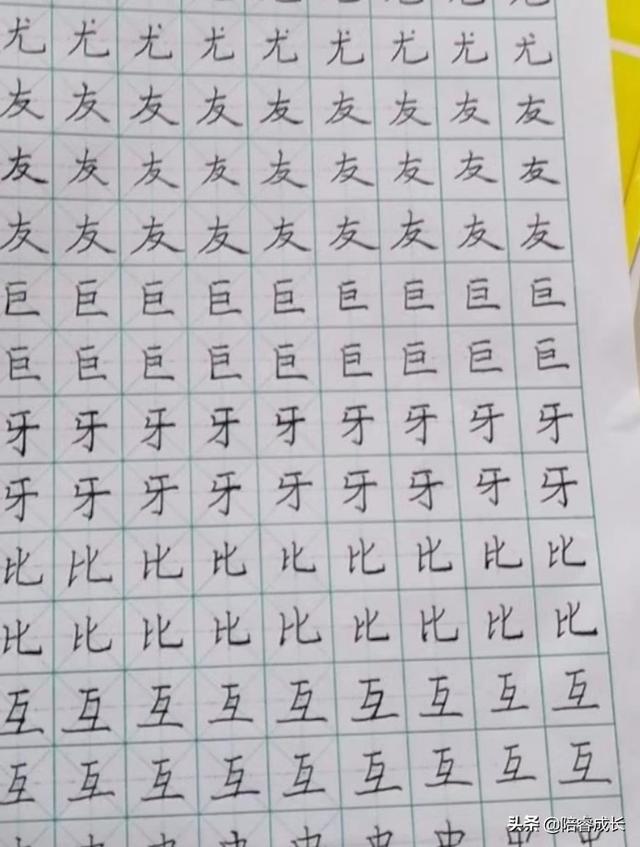 尤尤尤尤尤尤尤尤尤
友友友友友友友友友
友友友友友友友友友
友友友友友友友友友
巨巨巨巨巨巨巨巨巨
巨巨巨巨巨巨巨巨巨
牙牙牙牙牙牙牙牙牙
牙牙牙牙牙牙牙牙牙
比比比比比比比比比
比比比比比比比比比
互互互互互互互互互
互互互互互互互互互
头条 @陪睿成长